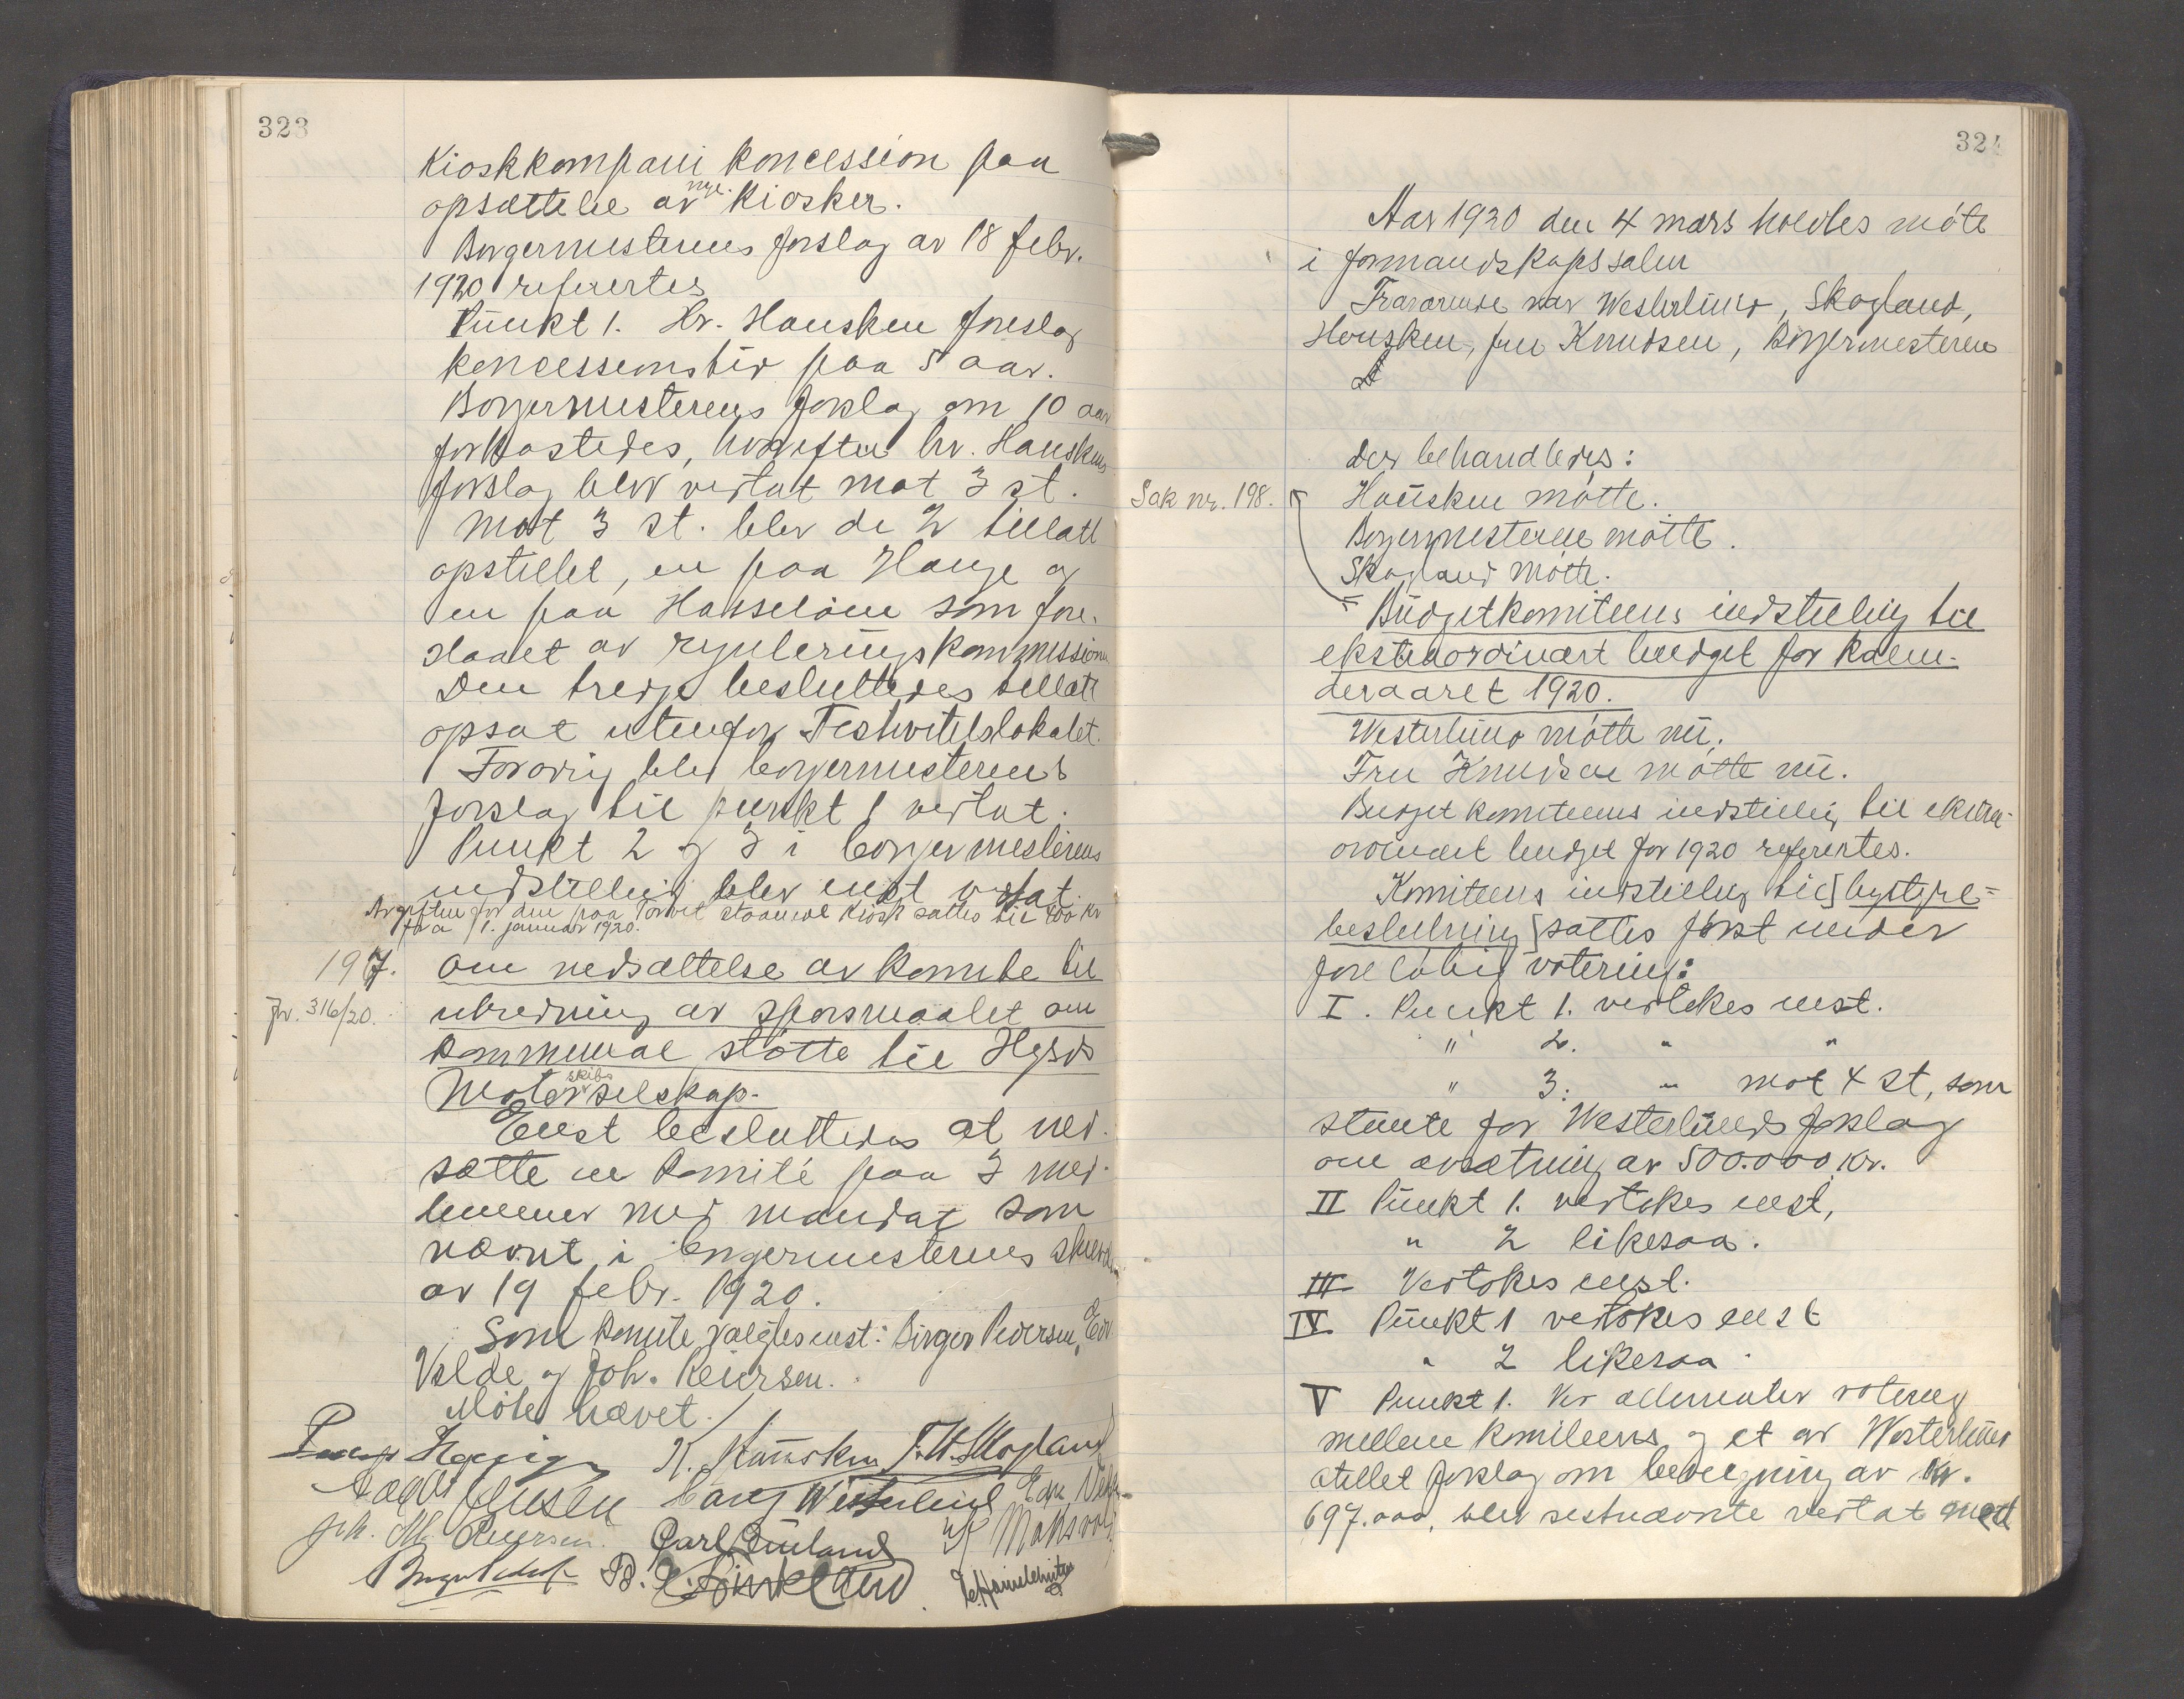 323
Kioskkompani koncession paa
opsættelse av nye Kiosker.
Borgermesterens forslag av 18 febr.
1920 refertes
Punkt 1. Hr. Hausken foreslog
koncessionstid paa 5 aar.
Borgermesterens forslag om 10 aar
forkastedes, hvorefter hr. Hauskens
forslag blev vedtat mot 3 st.
Mot 3 st. blev de 2 tillatt
opstillet, en paa Hauge og
en paa Hasseløen som fore-
slaaet av reguleringskommissionen
Den tredje besluttedes tillatt
opsat utenfor Festivitetslokalet.
Forøvrig blev borgermesterens
forslag til punkt 1 vedtat.
Punkt 2 og 3 i borgermesterens
indstilling blev enst vedtat.
Avgiften for den paa Torvet staaende Kiosk sattes til 400 kr
fra 1. januar 1920.
197. Om nedsættelse av komite til
Jr. 316/20. utredning av spørsmaalet om
kommunal støtte til Hgsds
Motorskibsselskap.
Enst besluttedes at ned-
sætte en komité paa 3 med-
lemmer med mandat som
nævnt i borgermesterens
av 19 febr. 1920.
Som komite valgtes enst: Birger Pedersen, Edv.
Valde og Joh. Reiersen.
Møtet hævet.
K. Hausken T. H. Skogland
Aagot Knusen Carey Westerlund
Joh. M. Reiersen. Carl Quiland
Birger Pedersen B. E. Birkeland
324
Aar 1920 den 4 mars holdtes møte
i formandskapssalen
Fraværende var Westerlund, Skogland,
Hausken, fru Knudsen, Borgermesteren
Der behandledes:
Sak nr. 198. Hausken møtte.
Borgermesteren møtte.
Skogland møtte.
Budgetkomiteens indstilling til
ekstraordinært budget for kalen-
deraaret 1920.
Westerlund møtte nu.
Fru Knudsen møtte nu.
Budgetkomiteens indstilling til ekstra-
ordinært budget for 1920 refertes.
Komiteens indstilling til [bystyre-
beslutning] sattes først under
foreløbig votering:
I. Punkt 1. vedtokes enst.
" 2. " "
" 3. " mot 4 st, som
stemte for Westerlunds forslag
om avsætning av 500.000 kr.
II Punkt 1. vedtokes enst,
" 2 likesaa.
III Vedtokes enst.
IV Punkt 1 vedtokes enst
" 2 likesaa.
V Punkt 1. Ved alternativ votering
mellem komiteens og et av Westerlund
stillet forslag om bevilgning av kr.
697.000, blev sistnævnte vedtat med